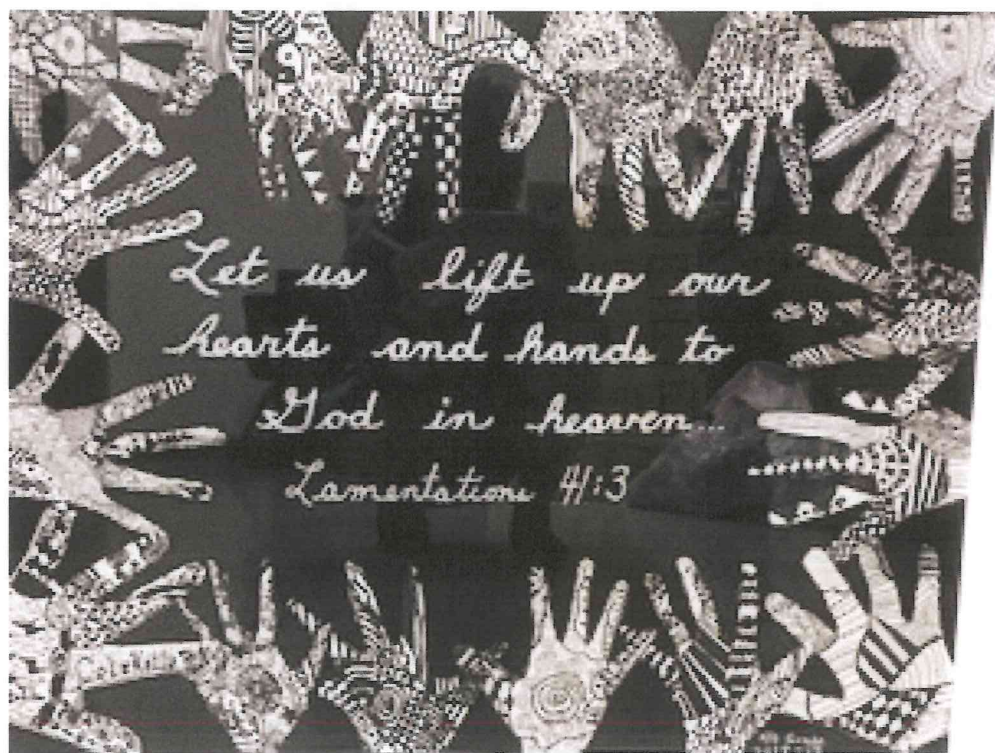 Let us lift up our
hearts and hands to
God in heaven...
Lamentations 41:3
4th Grade